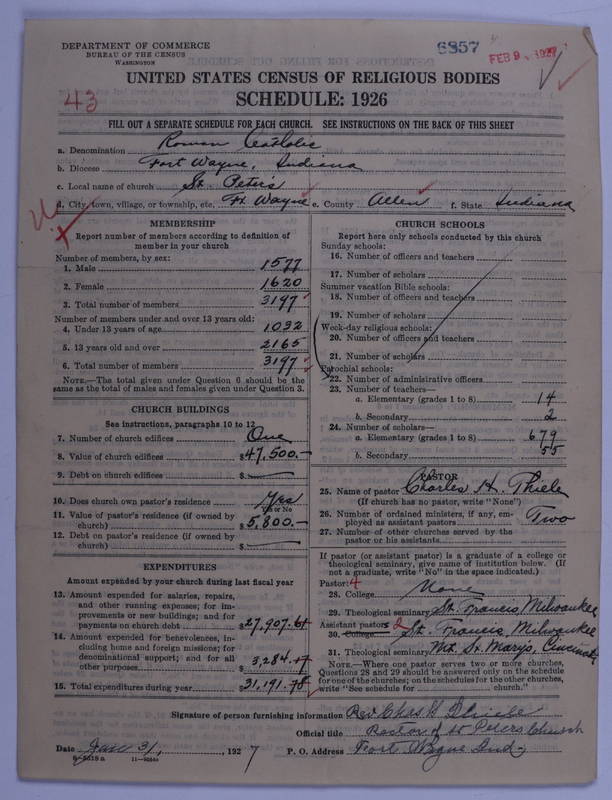 DEPARTMENT OF COMMERCE
BUREAU OF THE CENSUS
WASHINGTON
6857
FEB 9 1927
UNITED STATES CENSUS OF RELIGIOUS BODIES
SCHEDULE: 1926
43
FILL OUT A SEPARATE SCHEDULE FOR EACH CHURCH. SEE INSTRUCTIONS ON THE BACK OF THIS SHEET
a. Denomination Roman Catholic
b. Diocese Fort Wayne, Indiana
c. Local name of church St. Peter's
d. City, town, village, or township, etc. Ft. Wayne e. County Allen f. State Indiana
MEMBERSHIP
Report number of members according to definition of
member in your church
Number of members, by sex:
1. Male 1577
2. Female 1620
3. Total number of members 3197
Number of members under and over 13 years old:
4. Under 13 years of age 1032
5. 13 years old and over 2165
6. Total number of members 3197
NOTE.—The total given under Question 6 should be the
same as the total of males and females given under Question 3.
CHURCH BUILDINGS
See instructions, paragraphs 10 to 12
7. Number of church edifices One
8. Value of church edifices $47,500.—
9. Debt on church edifices $ —
10. Does church own pastor's residence Yes
Yes or No
11. Value of pastor's residence (if owned by
church) $5,800.—
12. Debt on pastor's residence (if owned by
church) $ —
EXPENDITURES
Amount expended by your church during last fiscal year
13. Amount expended for salaries, repairs,
and other running expenses; for im-
provements or new buildings; and for
payments on church debt $27,907.61
14. Amount expended for benevolences, in-
cluding home and foreign missions; for
denominational support; and for all
other purposes $3,284.17
15. Total expenditures during year $31,191.78
CHURCH SCHOOLS
Report here only schools conducted by this church
Sunday schools:
16. Number of officers and teachers
17. Number of scholars
Summer vacation Bible schools:
18. Number of officers and teachers
19. Number of scholars
Week-day religious schools:
20. Number of officers and teachers
21. Number of scholars
Parochial schools:
22. Number of administrative officers
23. Number of teachers—
a. Elementary (grades 1 to 8) 14
b. Secondary 2
24. Number of scholars—
a. Elementary (grades 1 to 8) 679
b. Secondary 55
PASTOR
25. Name of pastor Charles H. Thiele
(If church has no pastor, write "None")
26. Number of ordained ministers, if any, em-
ployed as assistant pastors Two
27. Number of other churches served by the
pastor or his assistants
If pastor (or assistant pastor) is a graduate of a college or
theological seminary, give name of institution below. (If
not a graduate, write "No" in the space indicated.)
Pastor: 4
28. College None
29. Theological seminary St. Francis, Milwaukee
Assistant pastors 2
30. College St. Francis, Milwaukee
31. Theological seminary Mt. St. Mary's, Cincinnati
NOTE.—Where one pastor serves two or more churches,
Questions 28 and 29 should be answered only on the schedule
for one of the churches; on the schedules for the other churches,
write "See schedule for church."
Signature of person furnishing information Rev. Chas. H. Thiele
Official title Pastor of St Peters Church
Date Jan 31, 1927 P. O. Address Fort Wayne Ind.